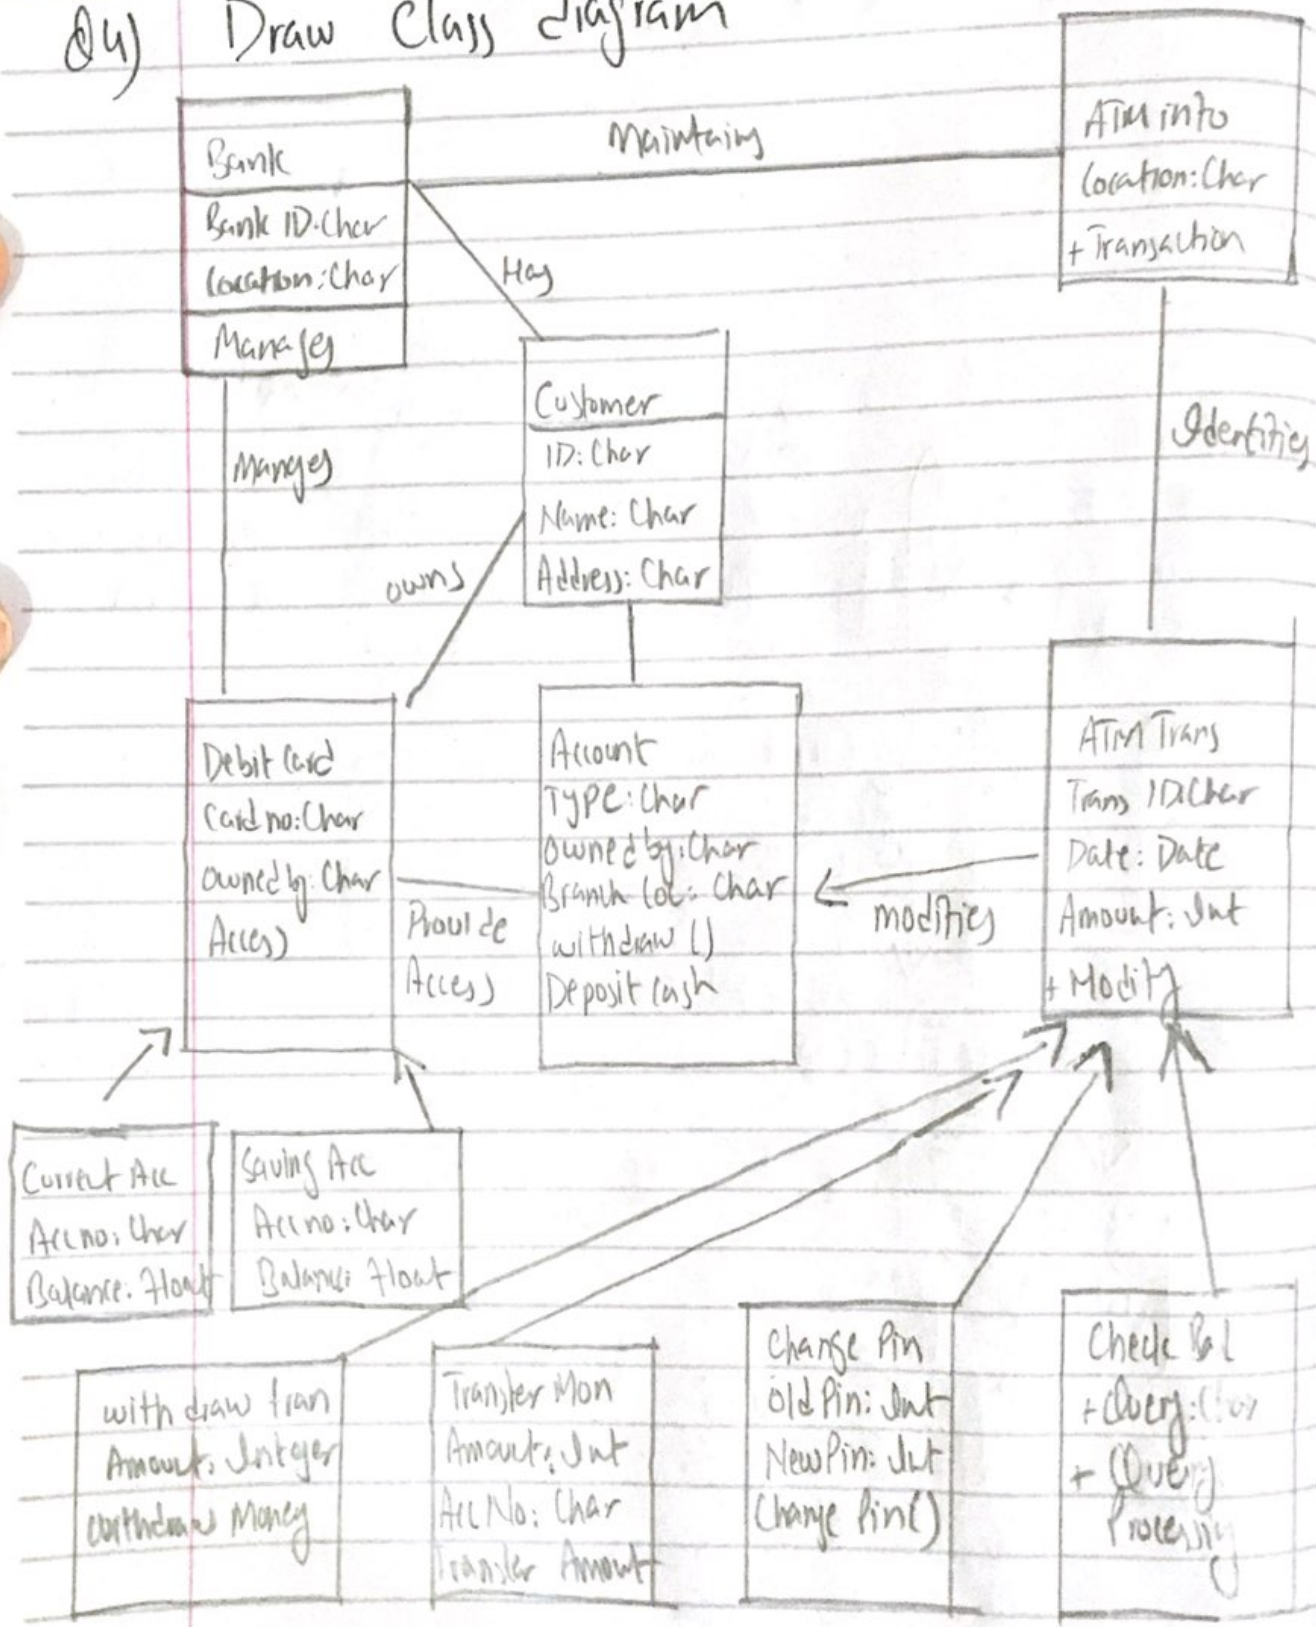 Q4) Draw Class diagram
Bank
Bank ID:Char
Location:Char
Manages
Maintains
ATM info
Location:Char
+Transaction
Has
Customer
ID:Char
Name: Char
Address: Char
Manges
owns
Identifies
Debit Card
Card no:Char
owned by: Char
Access
Provide
Access
Account
TYPE:Char
owned by:Char
Branch loc: Char
withdraw ()
Deposit cash
modifies
ATM Trans
Trans ID:Char
Date: Date
Amount: Int
+Modify
Current Acc
Acc no: Char
Balance: Float
Saving Acc
Acc no: Char
Balance: Float
withdraw tran
Amount: Integer
withdraw Money
Transfer Mon
Amount: Int
Acc No: Char
Transfer Amount
Change Pin
Old Pin: Int
New Pin: Int
Change Pin()
Check Bal
+Query:Char
+ Query
Processing